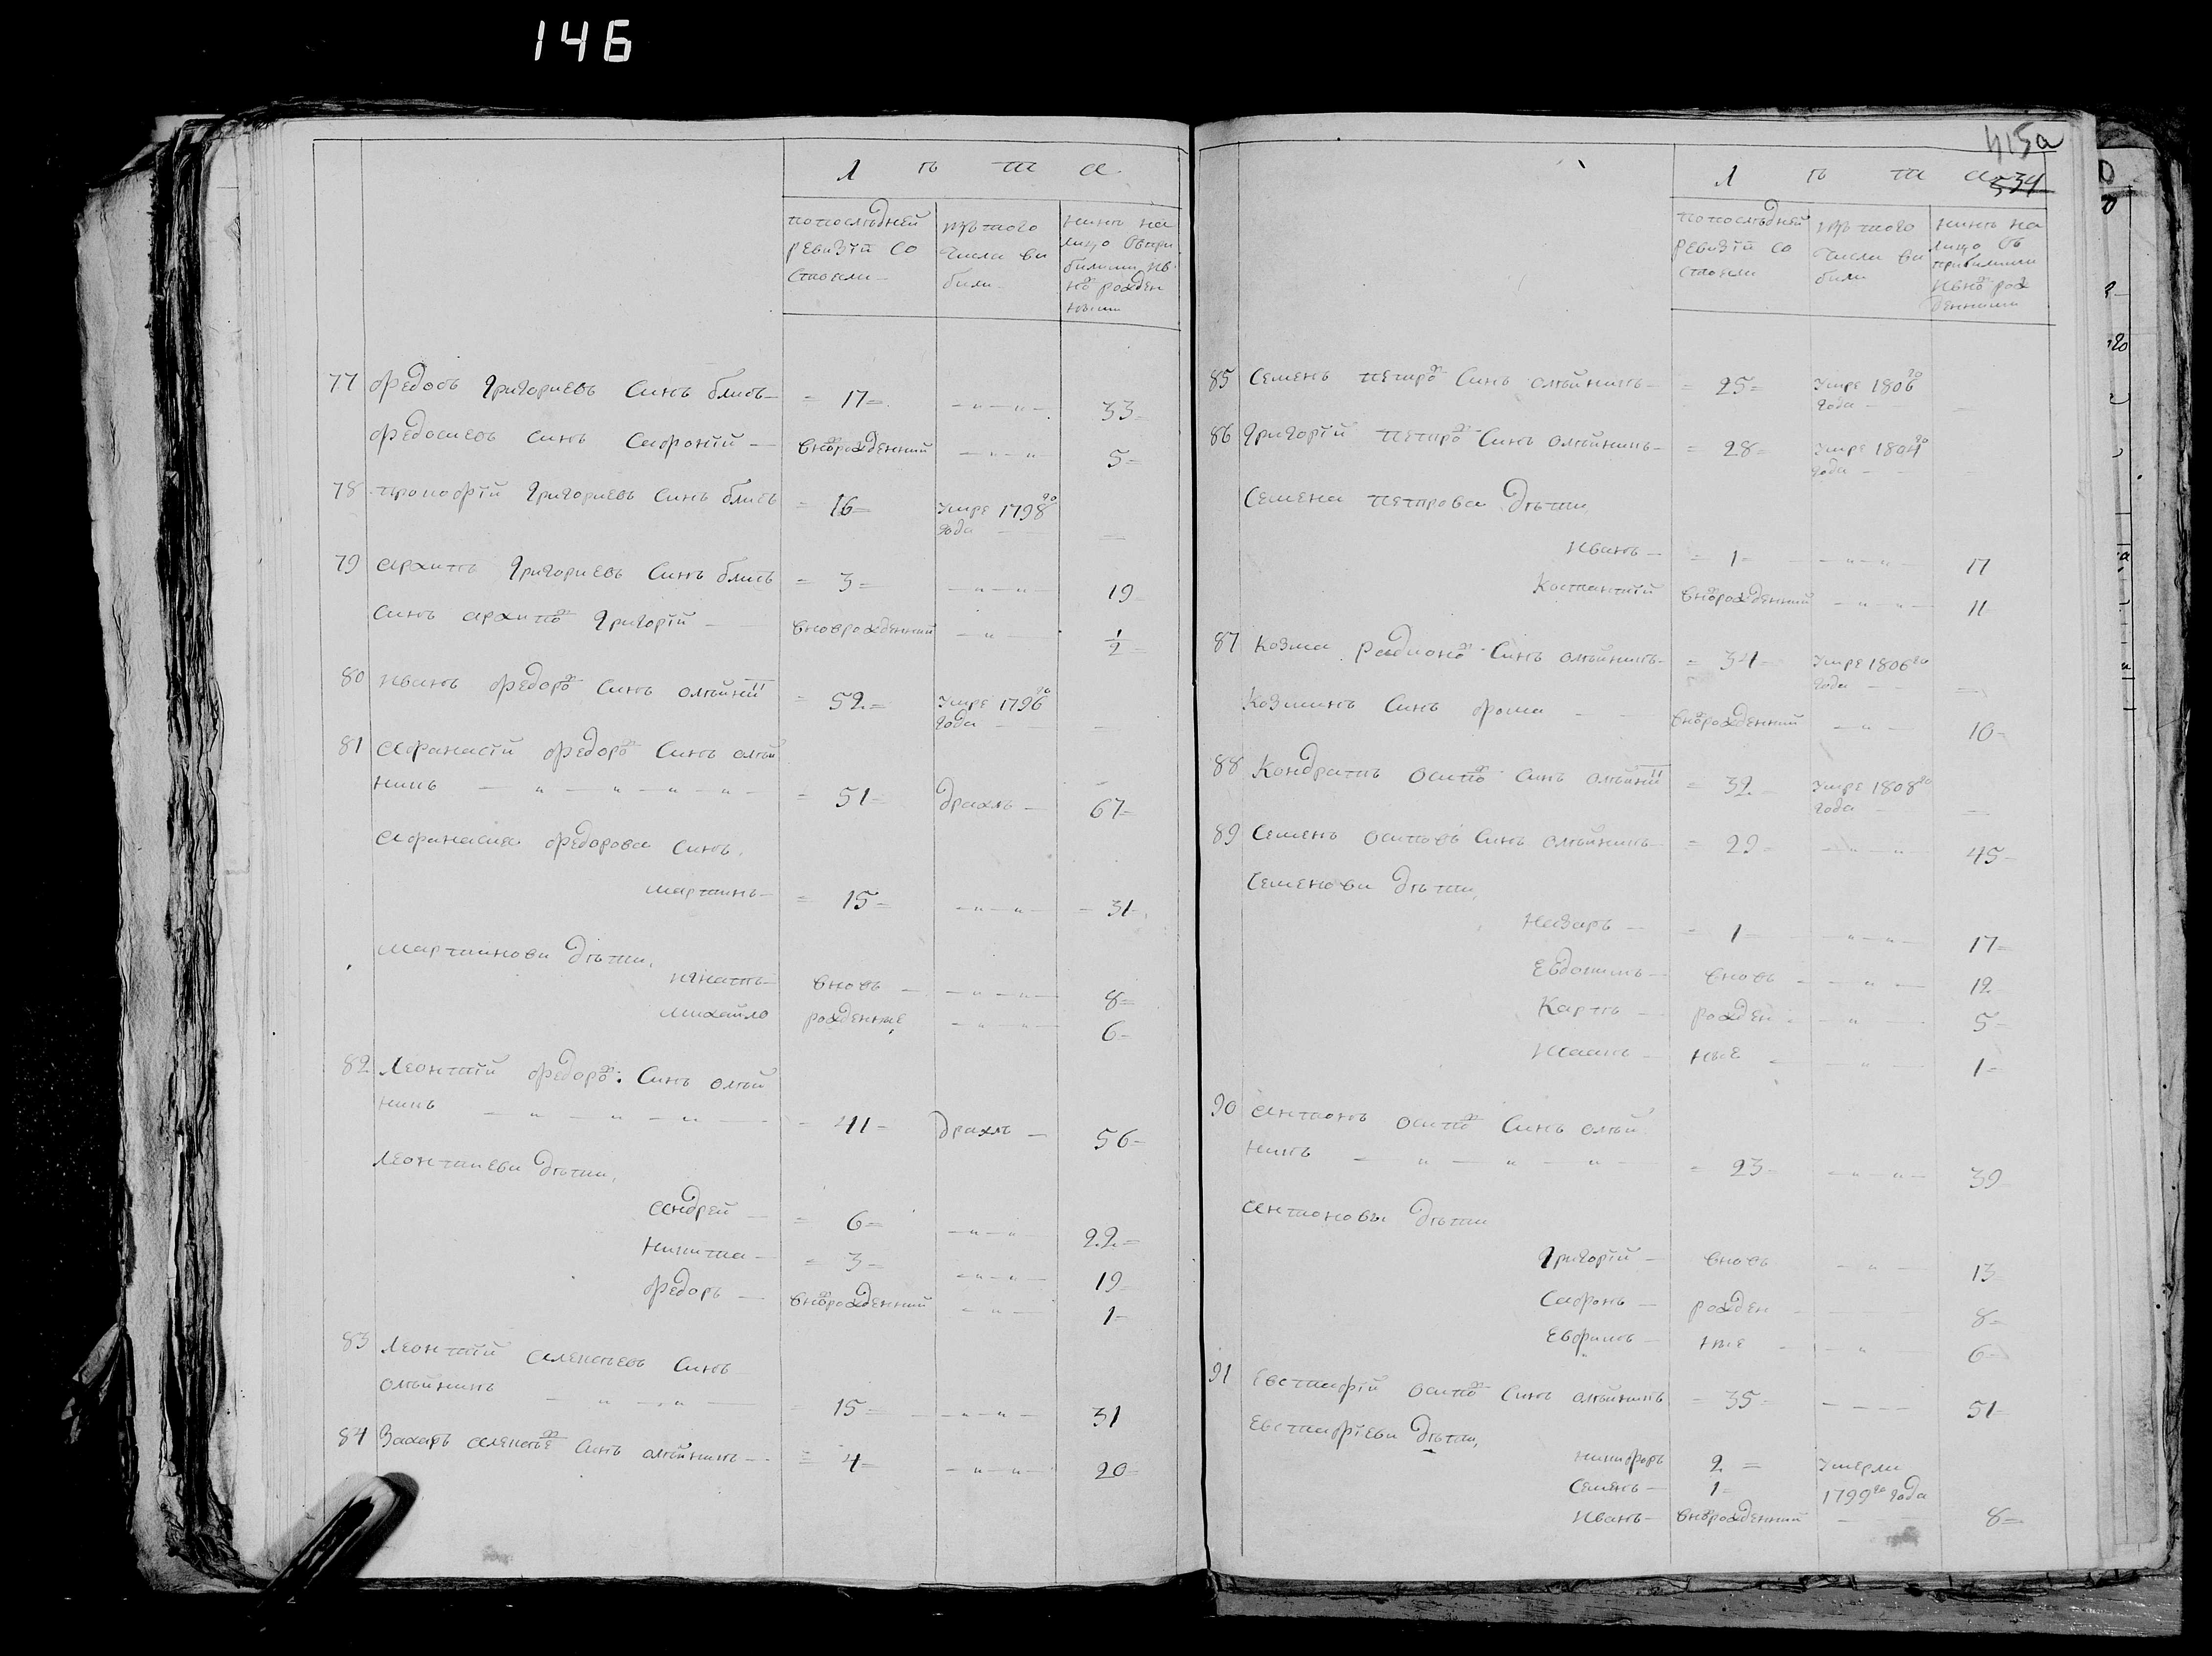 146
Л ѣ т а
попослѣдней ревизїи со стояли
изъ того числа вы были
нынѣ на лицо съпри былыми ив нов рожден ными
77 Федосъ Григориевъ Синъ блисъ = 17 = — „ — „ — 33
Федосиевъ синъ Сафонїй — вновьрожденний — „ — „ 5
78 Прокофїй Григориевъ Синъ блисъ = 16 = Умре 1798го
года —
79 Архипъ Григориевъ Синъ блисъ = 3 = — „ — „ — 19
Синъ архипов Григорїй — вноврожденний — „ — 1/2
80 Иванъ Федоров Синъ олѣйни = 52 = Умре 1796го
года —
81 Афанасїй Федоров Синъ олѣй
никъ — „ — „ — „ — „ — = 51 = Драхлъ — 67
Афанасиа Федорова Синъ
Мартинъ — = 15 = — „ — „ — 31
Мартинови Дѣти,
Игнатъ — вновь — — „ — „ — 8
Михайло рожденные — „ — „ 6
82 Леонтїй Федоров Синъ олѣй
никъ — „ — „ — „ — 41 = Драхлъ — 56
Леонтиеви Дѣти,
Андрей — = 6 = — „ — „ 22
Никита — = 3 = — „ — „ — 19
Федоръ — вновьрожденний — „ — 1
83 Леонтїй Алексѣевъ Синъ
олѣйникъ — „ — „ — 15 = — „ — „ — 31
84 Захаръ алексѣе Синъ олѣйникъ — = 4 = — „ — „ — 20
415а
534
Л ѣ т а
попослѣдней ревизїи со стояли
изъ того числа вы были
нынѣ на лицо съ прибылыми ивнов рож денными
85 Семенъ Петров Синъ олѣйникъ — = 25 = Умре 1806го
года —
86 Григорїй Петров Синъ олѣйникъ — = 28 = Умре 1804го
года —
Семена Петрова Дѣти,
Иванъ — = 1 = — „ — „ — 17
Костантїй вновьрожденний — „ — 11
87 Козма Радионов Синъ олѣйникъ — = 34 = Умре 1806го
года —
Козминъ Синъ Фома — — вновьрожденний — „ — 10
88 Кондратъ Осипов Синъ олѣйни = 32 — Умре 1808го
года —
89 Семенъ Осиповъ Синъ олѣйникъ — = 29 = — „ — „ 45
Семенови Дѣти,
Назаръ — = 1 — — „ — „ — 17
Евдокимъ — вновь — — „ — 12
Карпъ — рожден — „ — 5
ные — — „ — 1
90 Антонъ Осипов Синъ олѣй
никъ — „ — „ — „ — = 23 = — „ — „ — 39
Антоновы Дѣти
Григорїй — вновь — „ — 13
Сафонъ — рожден — 8
Евфимъ — ные — „ — 6
91 Евстафїй Осипов Синъ олѣйникъ = 35 = — 51
Евстафїеви Дѣти,
Никифоръ 2 = Умерли
Семенъ — 1 = 1799го года
Иванъ — вновьрожденний — 8